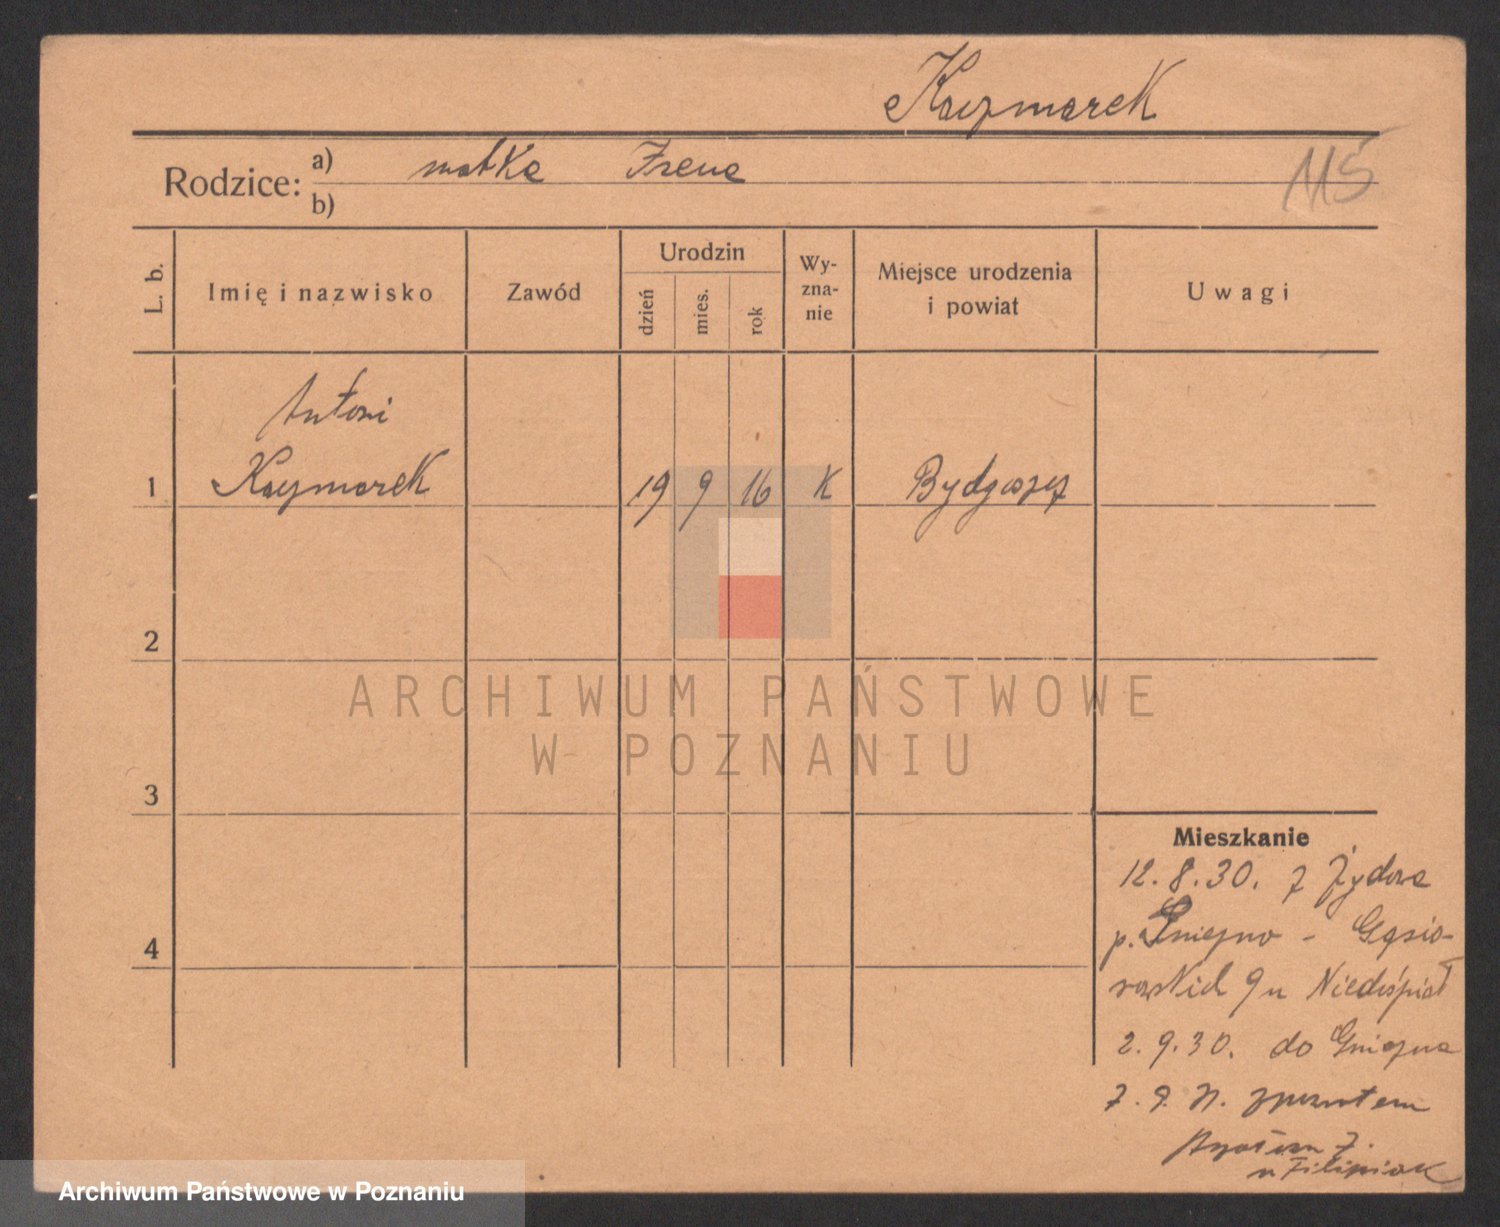 Kaczmarek
Rodzice: a) matka Irena
b)
MS
L. b.
Imię i nazwisko
Zawód
Urodzin
dzień
mies.
rok
Wy-
zna-
nie
Miejsce urodzenia
i powiat
Uwagi
Antoni
1 Kaczmarek 19 9 16 K Bydgoszcz
2
3
4
ARCHIWUM PAŃSTWOWE
W POZNANIU
Mieszkanie
12.8.30. z Żydowa
p. Gniezno - Gąsio-
rowskich 9 u Niedośpiał
2.9.30. do Gniezna
7.9. z powrotem
u Filipiak
Archiwum Państwowe w Poznaniu